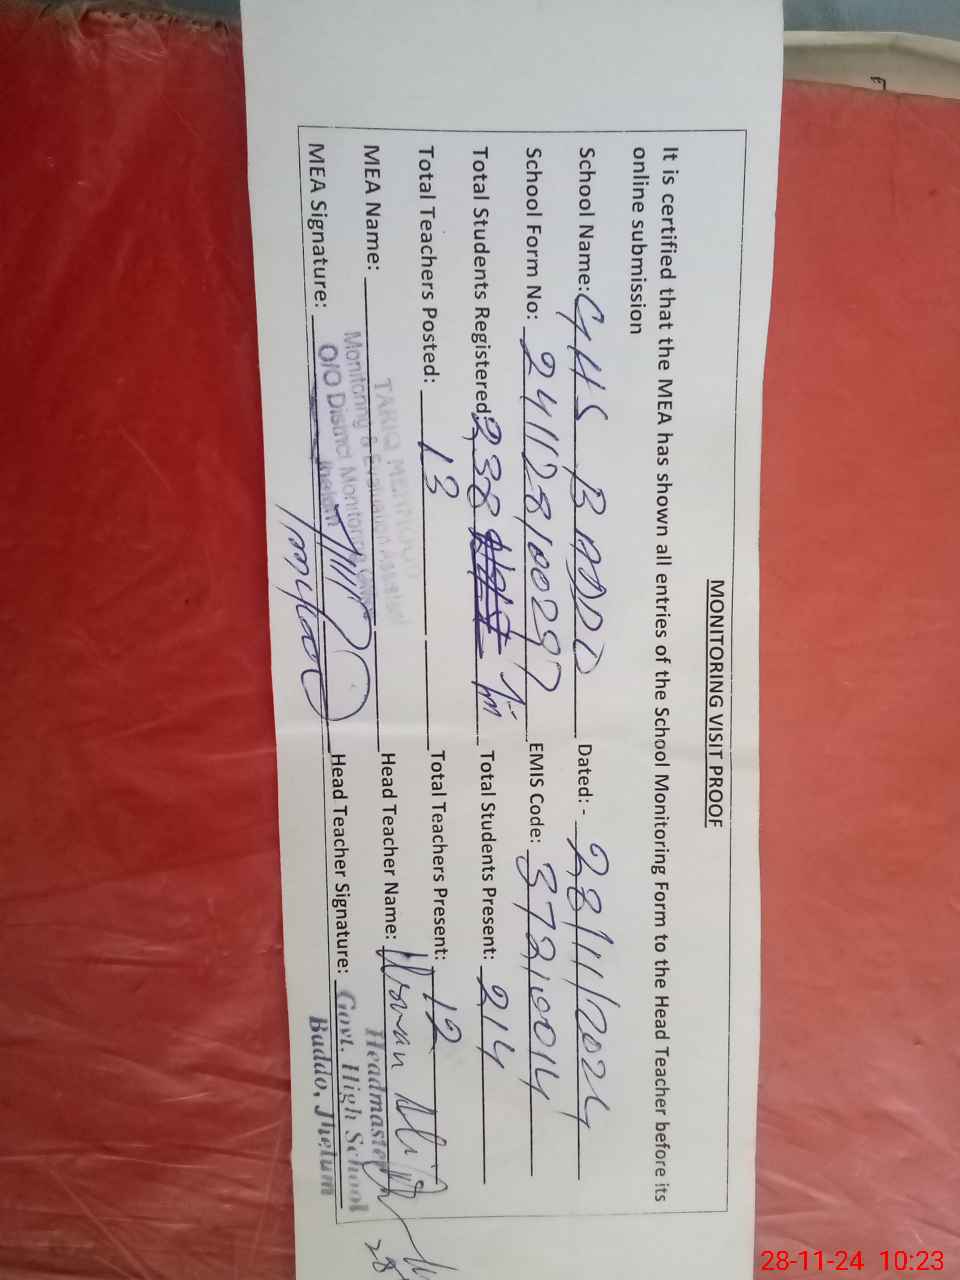 MONITORING VISIT PROOF
It is certified that the MEA has shown all entries of the School Monitoring Form to the Head Teacher before its
online submission
School Name: GHS BADDO Dated: - 28/11/2024
School Form No: 24112810029 EMIS Code: 37210014
Total Students Registered 238 Total Students Present: 214
Total Teachers Posted: 13 Total Teachers Present: 12
MEA Name: Head Teacher Name: Usman Ali
TARIQ MEHMOOD
Monitoring & Evaluation Assistant
O/O District Monitoring
Jhelum
MEA Signature: Head Teacher Signature:
Headmaster
Govt. High School
Baddo, Jhelum
28
28-11-24 10:23